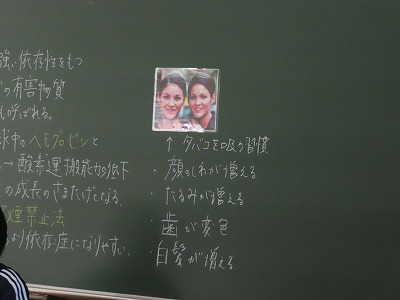 強い依存性をもつ
の有害物質
も呼ばれる。
中のヘモグロビンと
→酸素運搬能力の低下
の成長のさまたげとなる。
煙禁止法
より依存症になりやすい。
↑タバコを吸う習慣
・顔のしわが増える
・たるみが増える
・歯が変色
・白髪が増える